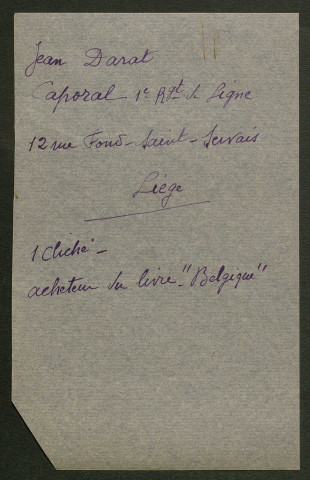 Jean Darat
Caporal 1e Rgt de Ligne
12 rue Fond-Saint-Servais
Liège
1 Cliché -
acheteur du livre - "Belgique"